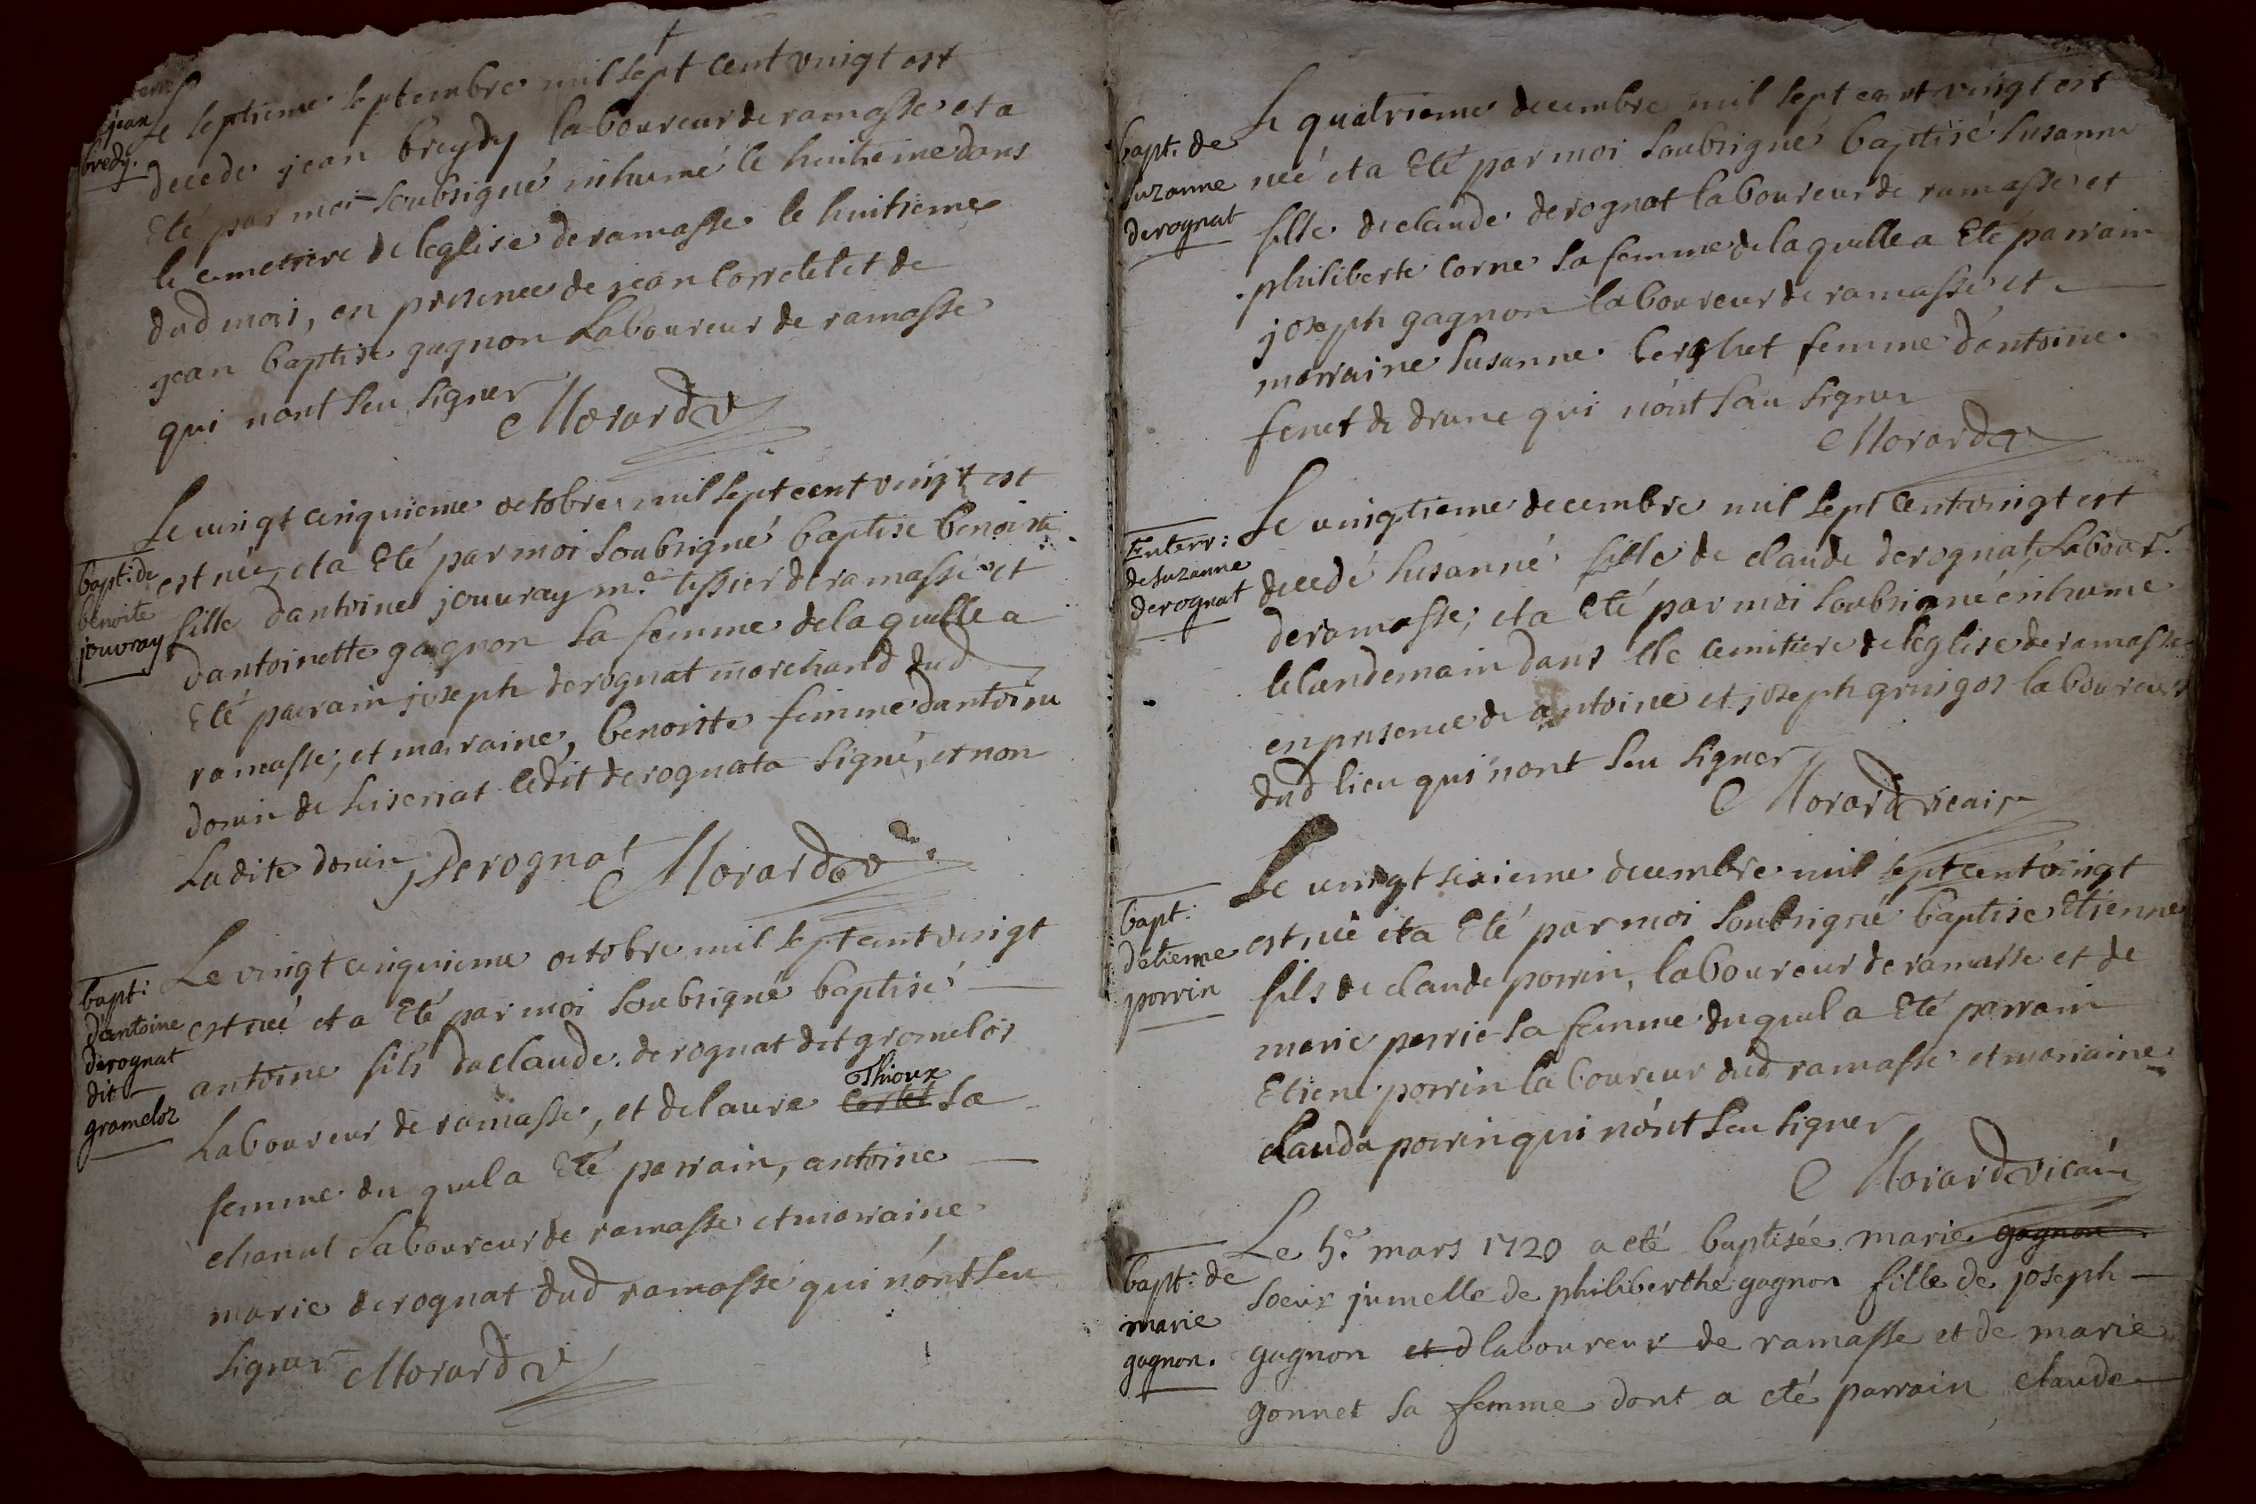 jean
bredy.
Le septieme septembre mil sept cent vingt est
decede jean breydy laboureur de ramasse et a
Eté par moi soubsigné inhumé le huitieme dans
le cimetiere de leglise de ramasse le huitieme
dud mois, en presence de jean Corretet et de
jean baptiste gagnon Laboureur de ramasse
qui nont seu signer
Morard v
bapt: de
benoite
jouvray
Le vingt cinquieme octobre mil sept cent vingt est
est née, et a Eté par moi soubsigné baptise benoiste
fille dantoine jouvray m.e tissier de ramasse et
dantoinette gagnon sa femme de la quelle a
Eté parrain joseph derognat marchand dud
ramasse, et marraine, benoiste femme dantoine
donin de siseriat ledit derognat a signé, et non
La dite donin, J derognat Morard v
bapt:
dantoine
derognat
dit
grameloz
Le vingt cinquieme octobre mil sept cent vingt
est né et a Eté par moi soubsigné baptisé
antoine fils de claude derognat dit gromeloz
Thioux
Laboureur de ramasse, et de laure sa
femme du quel a Eté parrain, antoine
chanut Laboureur de ramasse et marraine
marie derognat dud ramasse qui n'ont seu
signer Morard v
bapt: de
suzanne
derognat
Le quatrieme decembre mil sept cent vingt est
neé et a Eté par moi soubsigné baptisé susanne
fille de claude derognat laboureur de ramasse et
philiberte Corne sa femme de la quelle a Eté parrain
joseph gagnon laboureur de ramasse et
marraine susanne berghet femme d'antoine
fenet de drune qui n'ont sau signer
Morard v
Enterr:
de suzanne
derognat
Le vingtieme decembre mil sept cent vingt est
decedé susanne fille de claude derognat Labour.r
de ramasse, et a Eté par moi soubsigné enhume
le landemain dans le cemitiere de leglise de ramasse
en presence de antoine et joseph gruigoz laboureurs
dud lieu qui nont seu signer
Morard vicair
bapt:
detienne
perrin
Le vingt sixieme decembre mil sept cent vingt
est né et a Eté par moi soubsigné baptise Etienne
fils de claude perrin, laboureur de ramasse et de
marie perrie sa femme du quel a Eté parrain
Etiene perrin laboureur dud ramasse et marraine
clauda perrin qui n'ont seu signer
Morard vicair
bapt: de
marie
gagnon.
Le 5.e mars 1720 a eté baptisée marie gagnon
soeur jumelle de philiberthe gagnon fille de joseph
gagnon et d laboureur de ramasse et de marie
gonnet sa femme dont a eté parrain claude